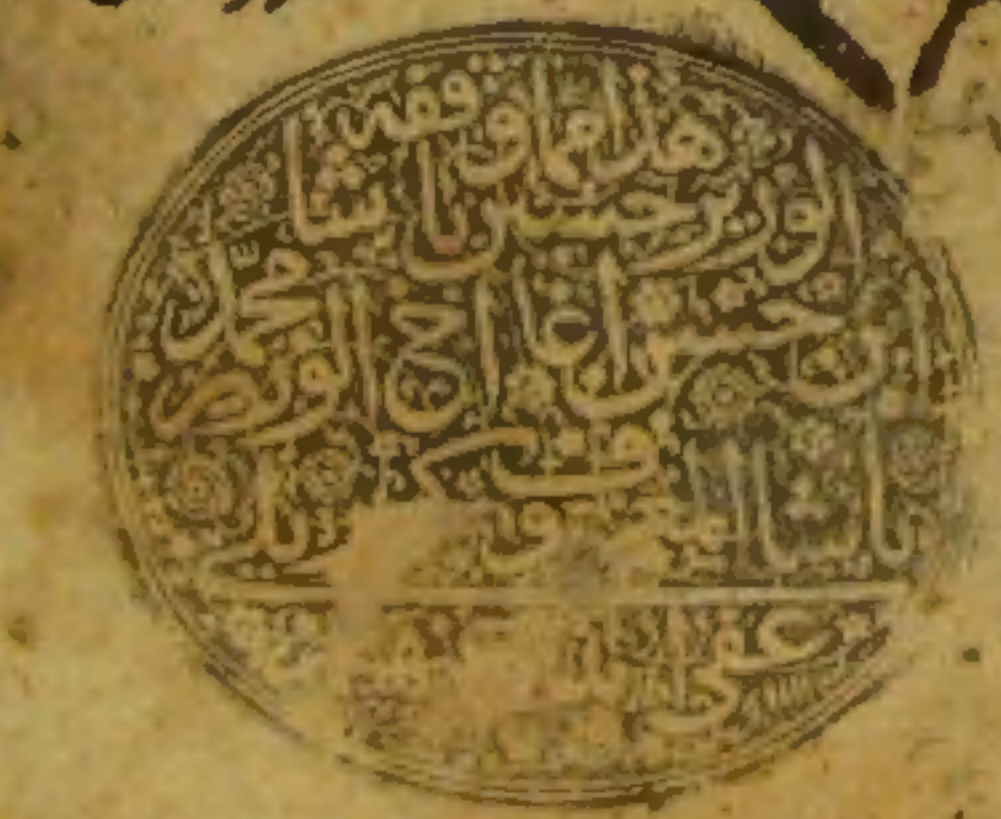 هذا مما وقفه
الوزير حسين باشا
ابن حسن اغا اخ الوزير محمد
باشا المعروف بكو بلي
عفى الله